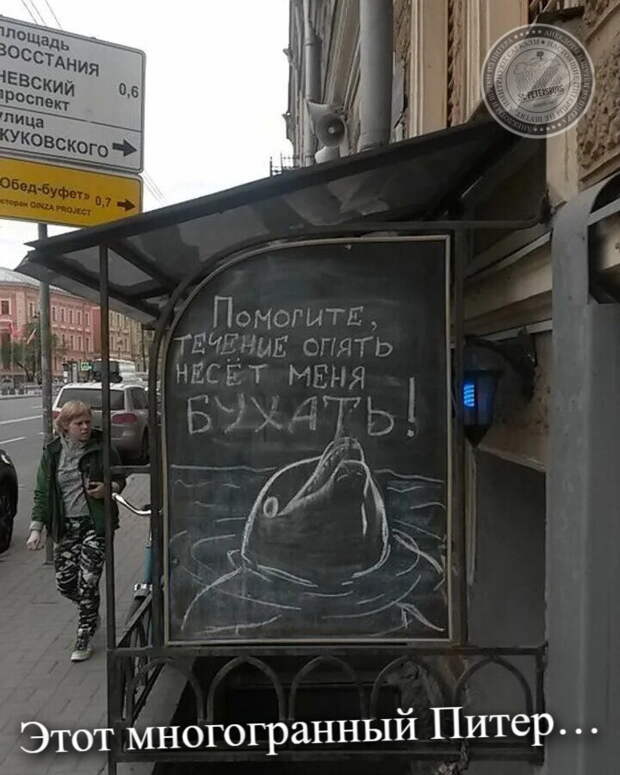 площадь
ВОССТАНИЯ
НЕВСКИЙ 0,6
проспект
улица
ЖУКОВСКОГО
«Обед-буфет» 0,7
ресторан GINZA PROJECT
ПОМОГИТЕ,
ТЕЧЕНИЕ ОПЯТЬ
НЕСЁТ МЕНЯ
БУХАТЬ!
St. PETERSBURG
Этот многогранный Питер...